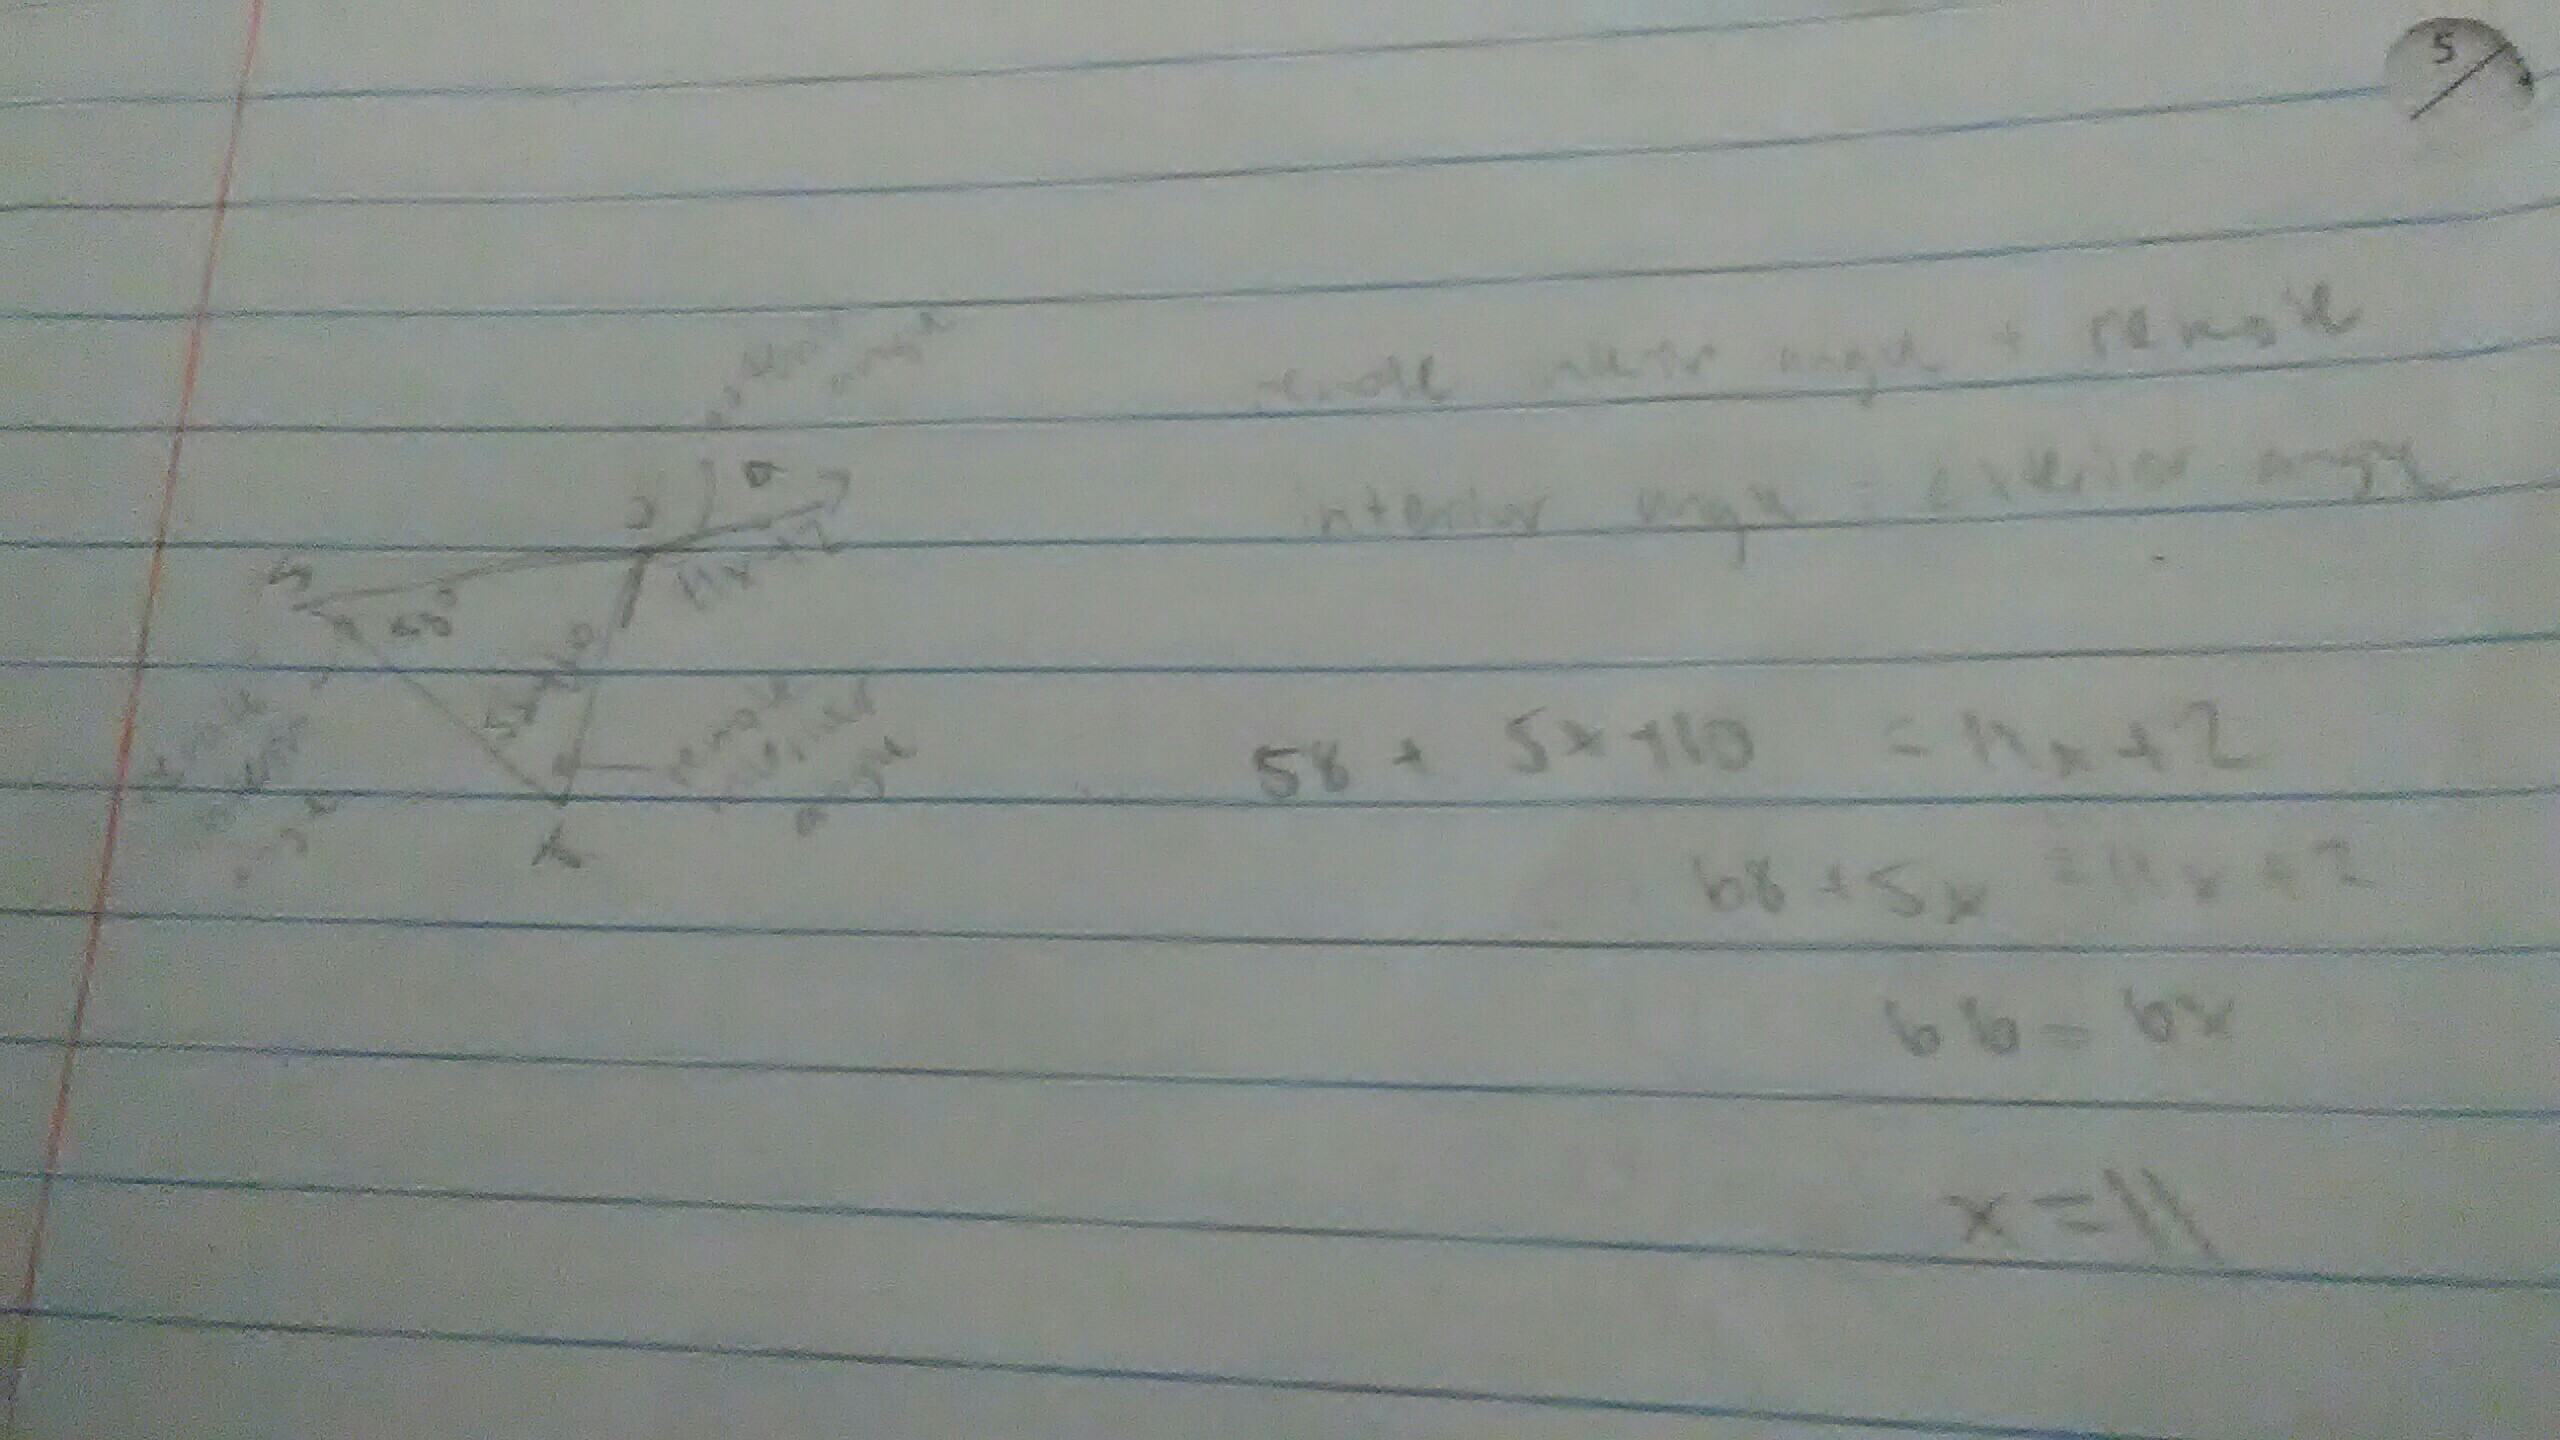 5
remote interior angle + remote
interior angle = exterior angle
exterior
angle
J
a
11x+2
5x+10
remote
angle
58 + 5x+10 = 11x+2
68 + 5x = 11x+2
66 = 6x
x = 11